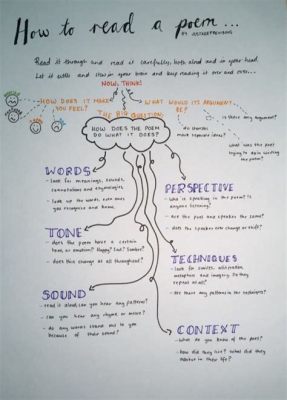 How to read a poem...
Read it through and read it carefully, both aloud and in your head.
Let it settle and stew in your brain and keep reading it over and over...
NOW, THINK!
HOW DOES IT MAKE
YOU FEEL?
WHAT WOULD ITS ARGUMENT
BE?
THE BIG QUESTION:
HOW DOES THE POEM
DO WHAT IT DOES?
is there any argument?
do stanzas
make separate ideas?
what was the poet
trying to do in writing
the poem?
WORDS
- look for meanings, sounds,
connotations and etymologies.
- look up the words, even ones
you recognise and know.
TONE
- does the poem have a certain
tone, or emotion? Happy? Sad? Sombre?
- does this change at all throughout?
SOUND
- read it aloud, can you hear any patterns?
- can you hear any rhyme or metre?
- do any words stand out to you
because of their sound?
PERSPECTIVE
- Who is speaking in the poem? Is
anyone listening?
- Are the poet and speaker the same?
- does the speaker ever change or shift?
TECHNIQUES
- look for similes, alliteration,
metaphors and imagery. Do they
repeat at all?
- Are there any patterns in the techniques?
CONTEXT
- What do you know of the poet?
- how did they live? What did they
in their life?